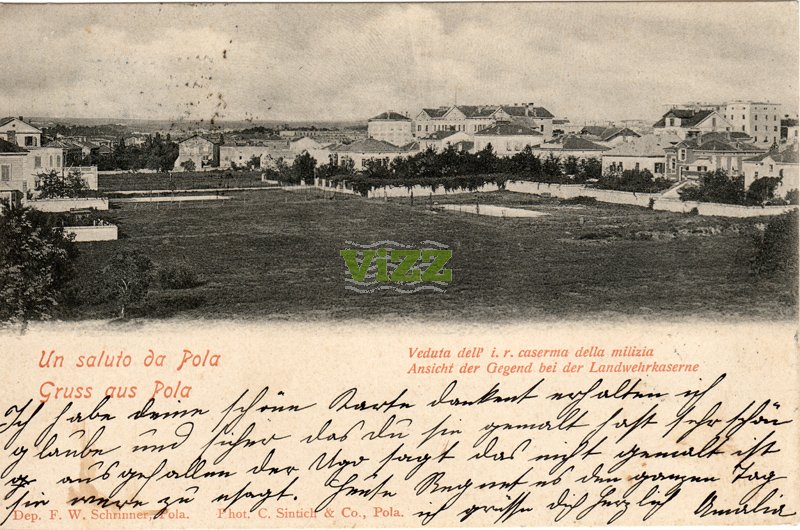 VIZZ
Un saluto da Pola
Gruss aus Pola
Veduta dell' i. r. caserma della milizia
Ansicht der Gegend bei der Landwehrkaserne
Ich habe deine schöne Karte dankent erhalten ich
glaube und sicher das du sie gemalt hast sehr schön
ausgefallen der Ugo sagt das nicht gemalt ist
sie were zu exagt. Heute Regnet es den ganzen Tag
ich grüsse dich herzlich Amalia
Dep. F. W. Schrinner, Pola. Phot. C. Sintich & Co., Pola.